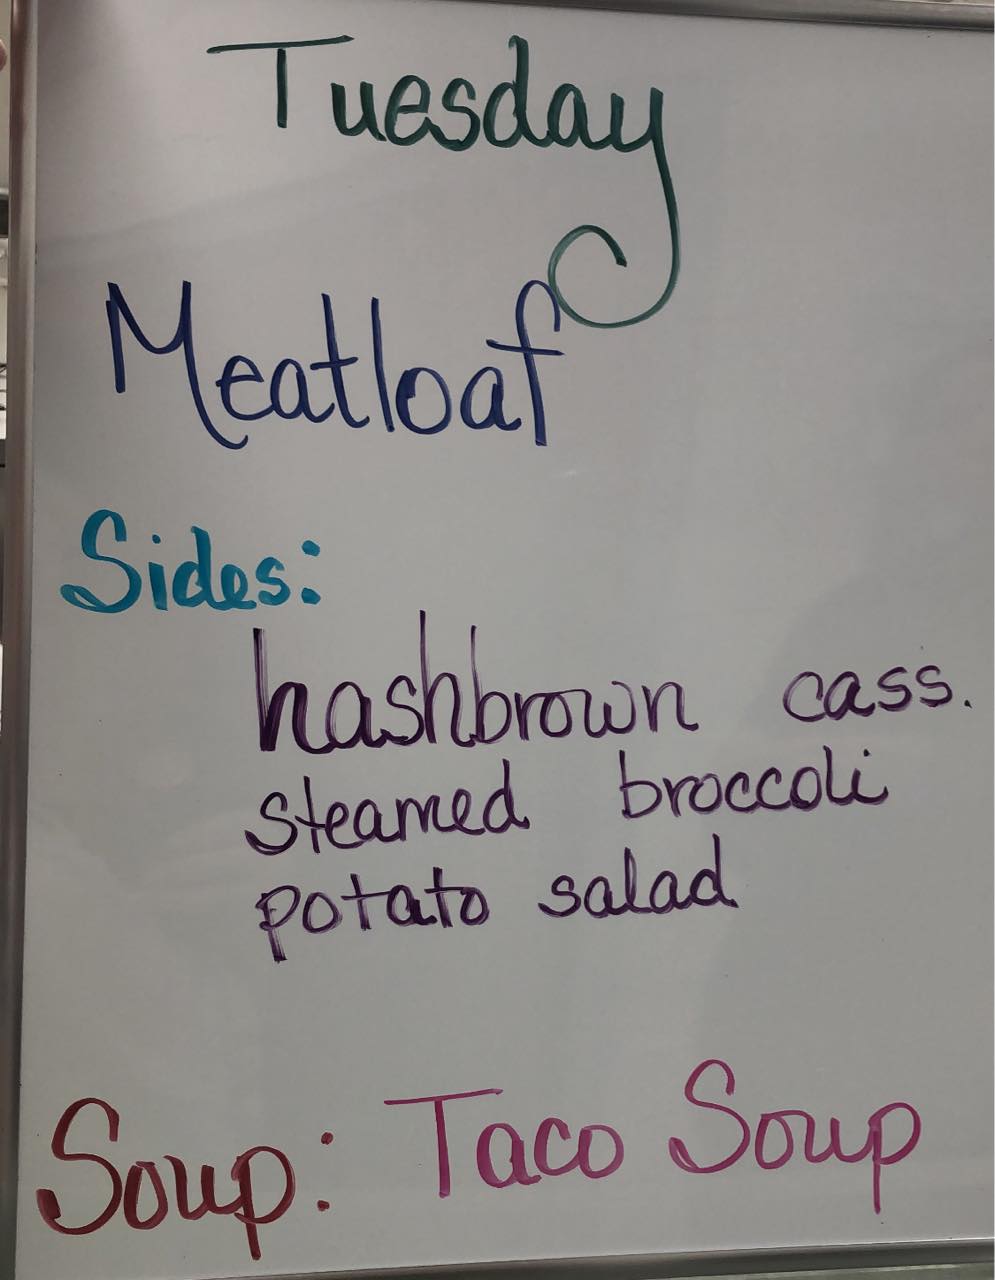 Tuesday
Meatloaf
Sides:
hashbrown cass.
steamed broccoli
potato salad
Soup: Taco Soup